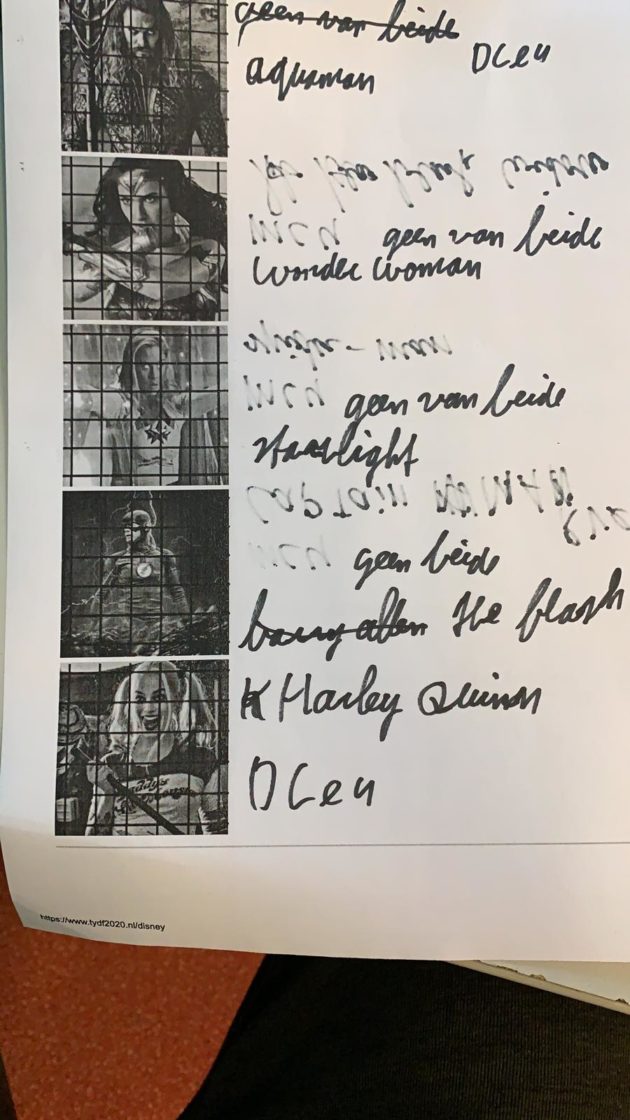 geen van beide
DCeu
aquaman
mcu geen van beide
Wonder Woman
spider-man
mcu geen van beide
starlight
captain
mcu geen beide
barry allen the flash
Harley Quinn
DCeu
https://www.tydf2020.nl/disney